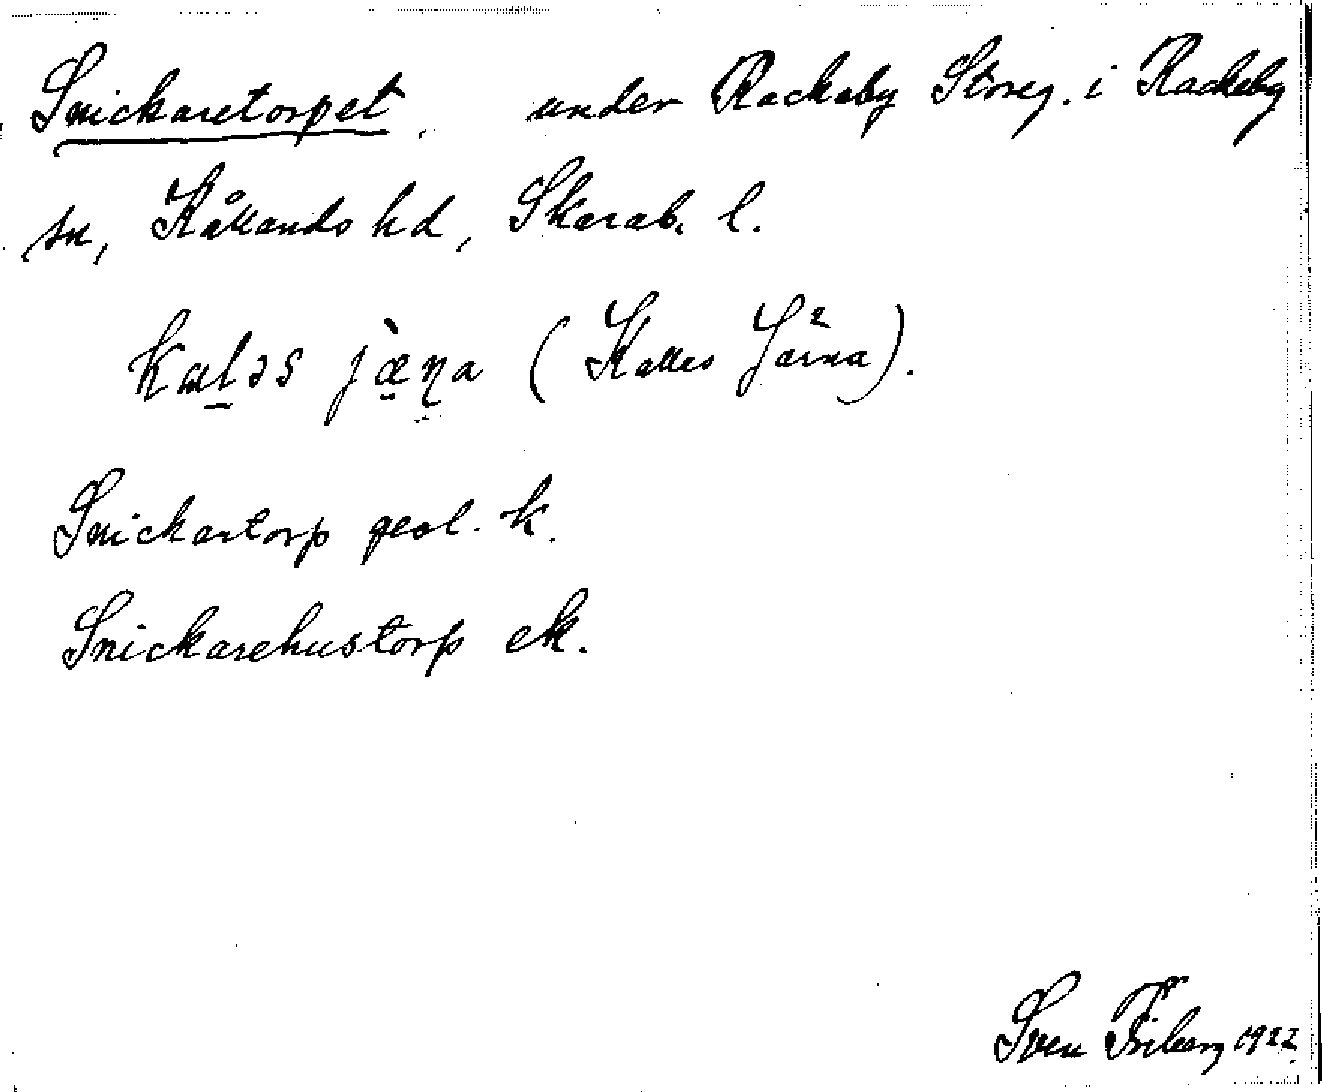 Snickaretorpet. under Rackeby Storeg. i Rackeby
sn, Kållands hd, Skarab. l.
kaləs jæ̀ɳa (Kalles Järna).
Snickartorp geol. k.
Snickarehustorp ek.
Sven Friberg 1922